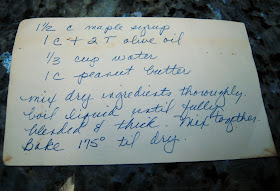 1½ c maple syrup
1 C + 2 T olive oil
⅓ cup water
1 C peanut butter
mix dry ingredients thoroughly.
boil liquid until fully
blended & thick. Mix together.
Bake 175° til dry.